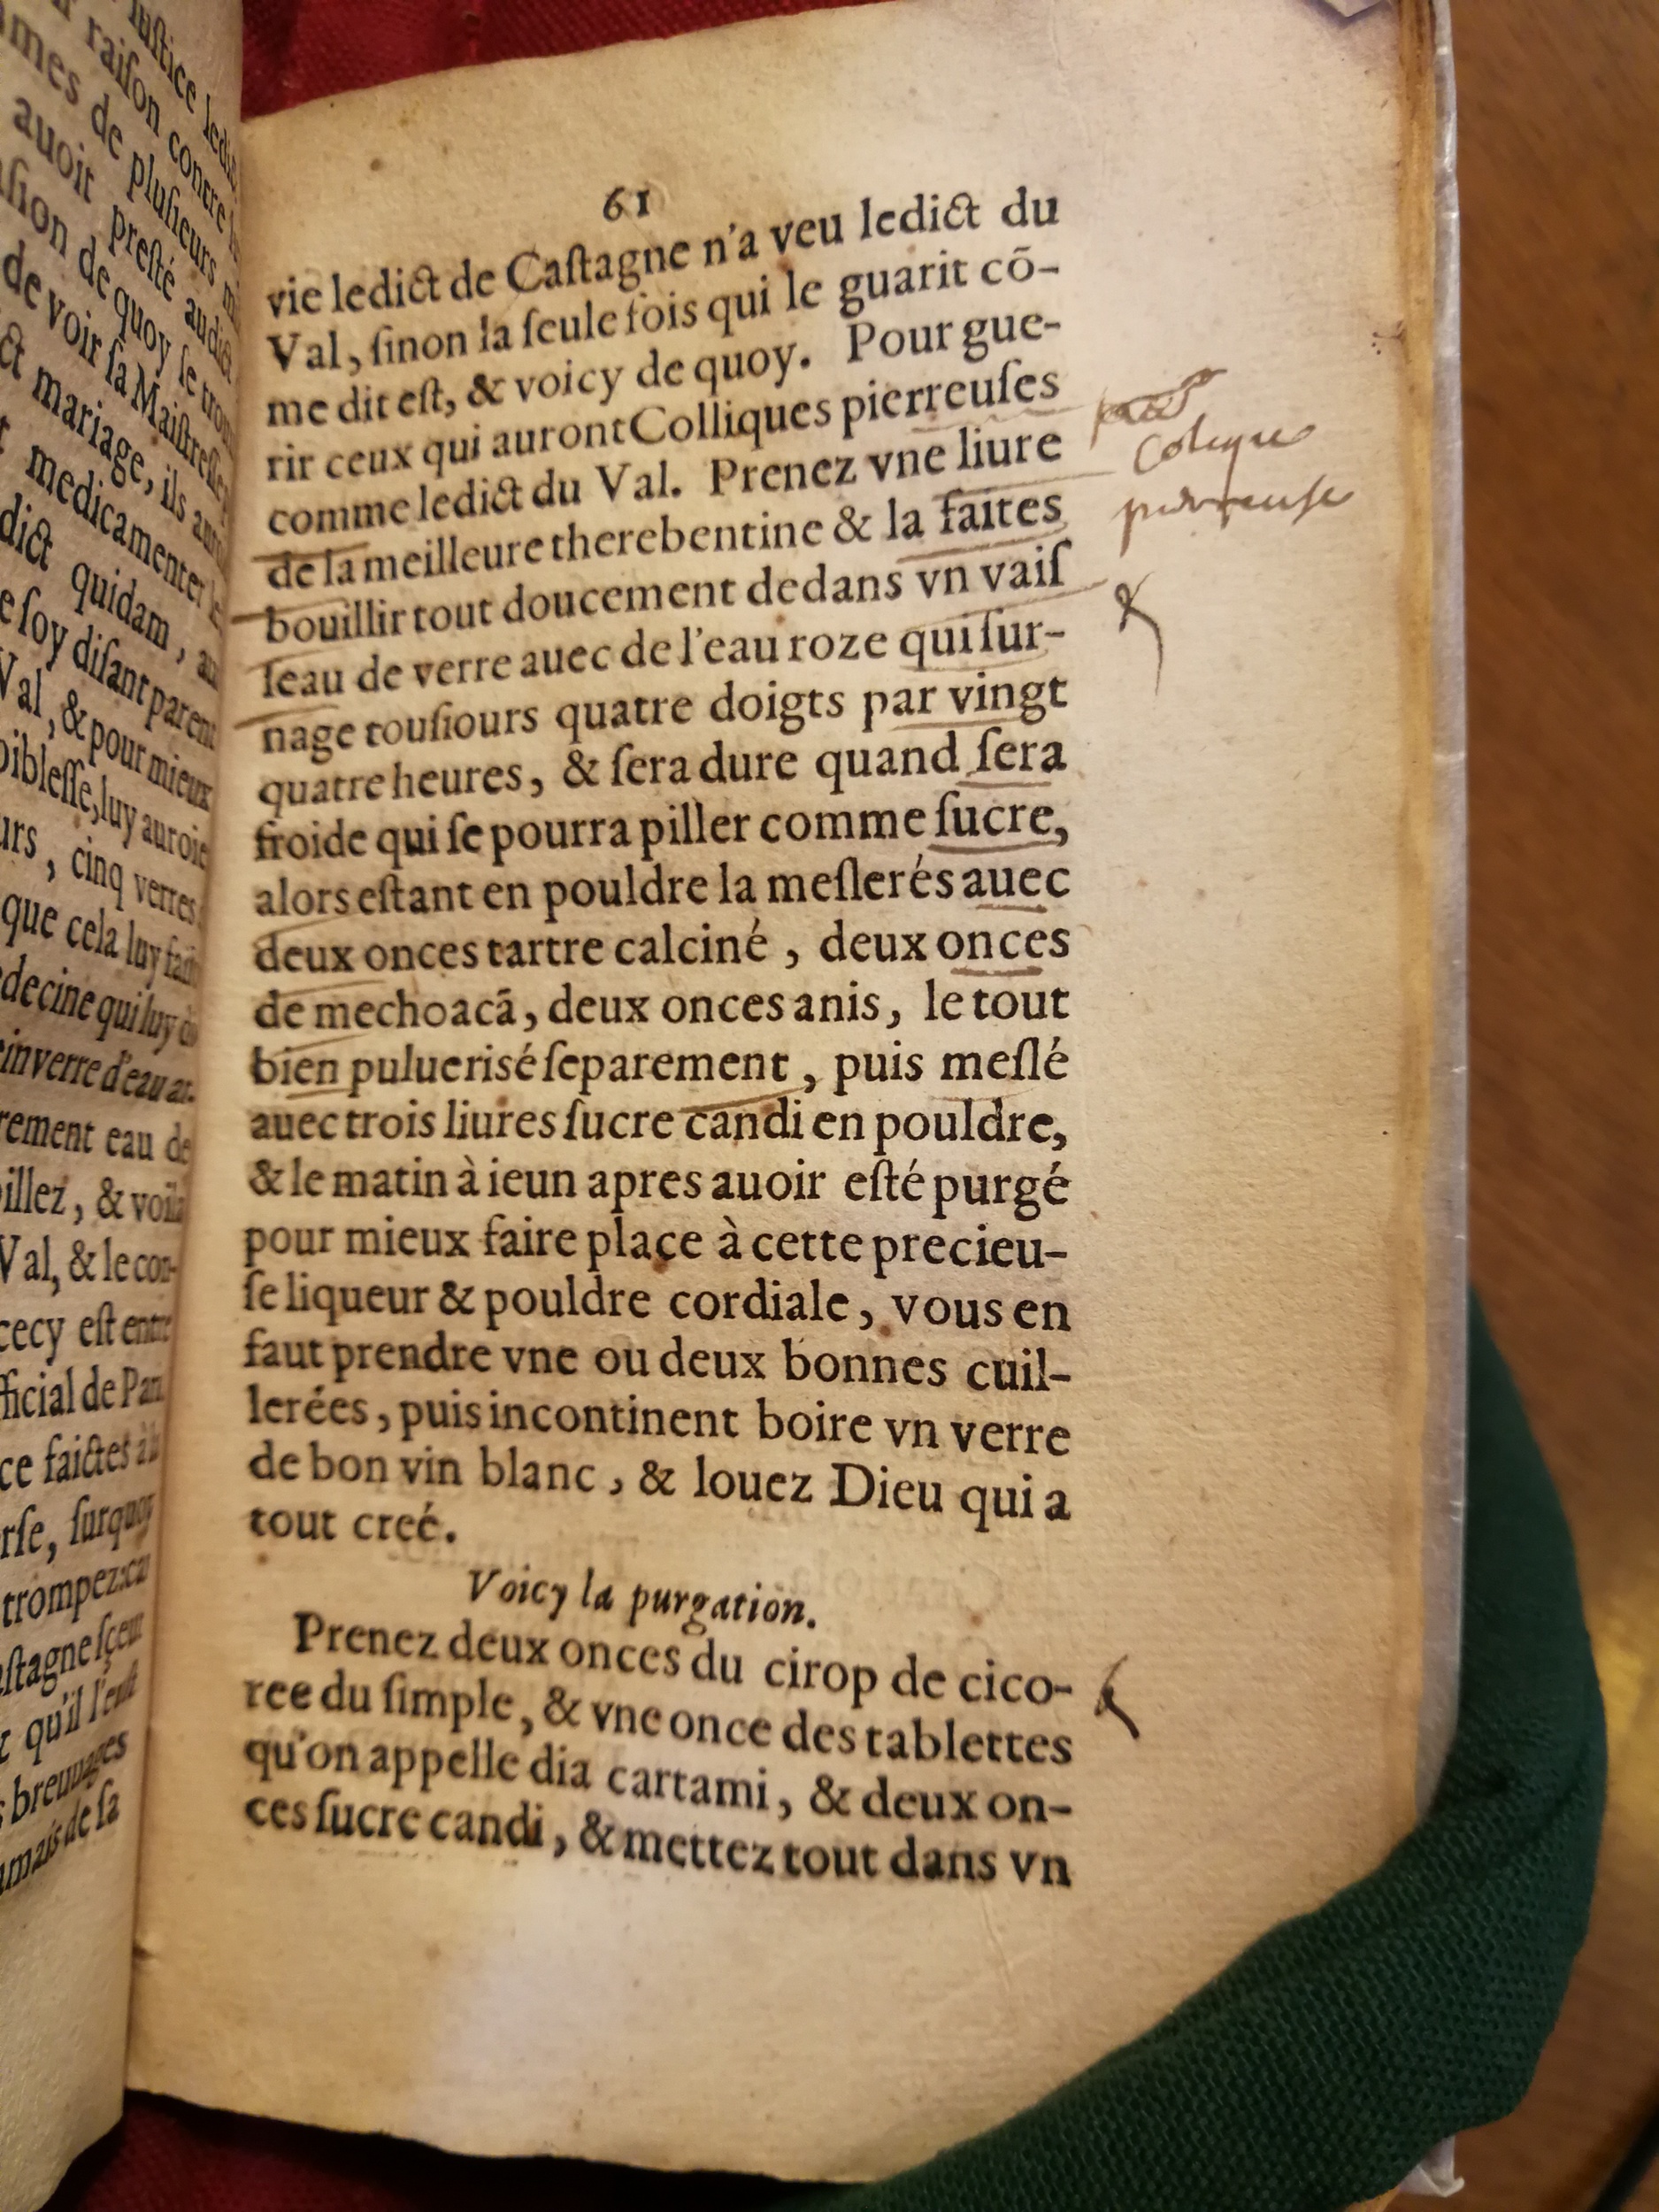 iustice ledi
raiſon contre
mes de pluſieurs
auoit preſté audict
ſion de quoy ſe
de voir ſa Maiſtreſſe
ct mariage, ils
medicamenter
dict quidam,
e ſoy diſant parent
Val, & pour mieux
oibleſſe, luy auroit
urs, cinq verres
que cela luy
decine qui luy
inverre d'eau
rement eau de
illez, & voila
Val, & le con-
cecy eſt
fficial de
ce faictes
rſe, ſurquoy
trompez:
ſtagne ſçeut
qu'il l'eut
breuuages
mais de ſa
61
vie ledict de Caſtagne n'a veu ledict du
Val, ſinon la ſeule fois qui le guarit cō-
me dit eſt, & voicy de quoy. Pour gue-
rir ceux qui auront Colliques pierreuſes
comme ledict du Val. Prenez vne liure
de la meilleure therebentine & la faites
bouillir tout doucement dedans vn vaiſ
ſeau de verre auec de l'eau roze qui ſur-
nage touſiours quatre doigts par vingt
quatre heures, & ſera dure quand ſera
froide qui ſe pourra piller comme ſucre,
alors eſtant en pouldre la meſlerés auec
deux onces tartre calciné, deux onces
de mechoacā, deux onces anis, le tout
bien puluerisé ſeparement, puis meſlé
auec trois liures ſucre candi en pouldre,
& le matin à ieun apres auoir eſté purgé
pour mieux faire place à cette precieu-
ſe liqueur & pouldre cordiale, vous en
faut prendre vne ou deux bonnes cuil-
lerées, puis incontinent boire vn verre
de bon vin blanc, & louez Dieu qui a
tout creé.
Voicy la purgation.
Prenez deux onces du cirop de cico-
ree du ſimple, & vne once des tablettes
qu'on appelle dia cartami, & deux on-
ces ſucre candi, & mettez tout dans vn
Colique
pierreuse